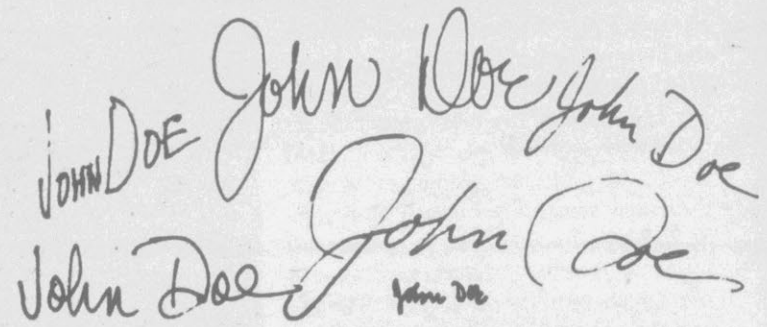 John Doe
John Doe
JOHN DOE
John Doe
John Doe
John Doe